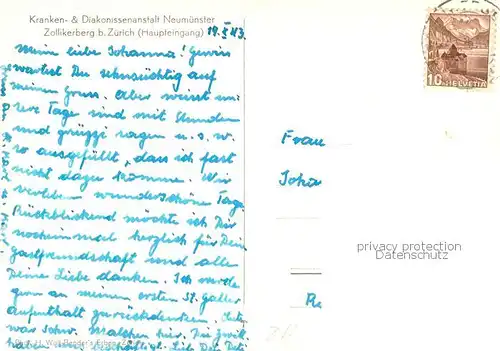 Kranken- & Diakonissenanstalt Neumünster
Zollikerberg b. Zürich (Haupteingang) 19. X 43.
Meine liebe Johanna! Gewiss
wartest Du sehnsüchtig auf
meinen Gruss. Aber weisst un-
sere Tage sind mit Stunden
und grüezi sagen u. s. w.
so ausgefüllt, dass ich fast
nicht dazu komme. Wir
verleben wunderschöne Tage.
Rückblickend möchte ich Dir
nocheinmal herzlich für Dein
Gastfreundschaft und alle
Deine Liebe danken. Ich werde
gern an meinen ersten St. Galler
aufenthalt zurückdenken.
war Schw. hier.
haben
HELVETIA
10
Frau
Joha
privacy protection
Datenschutz